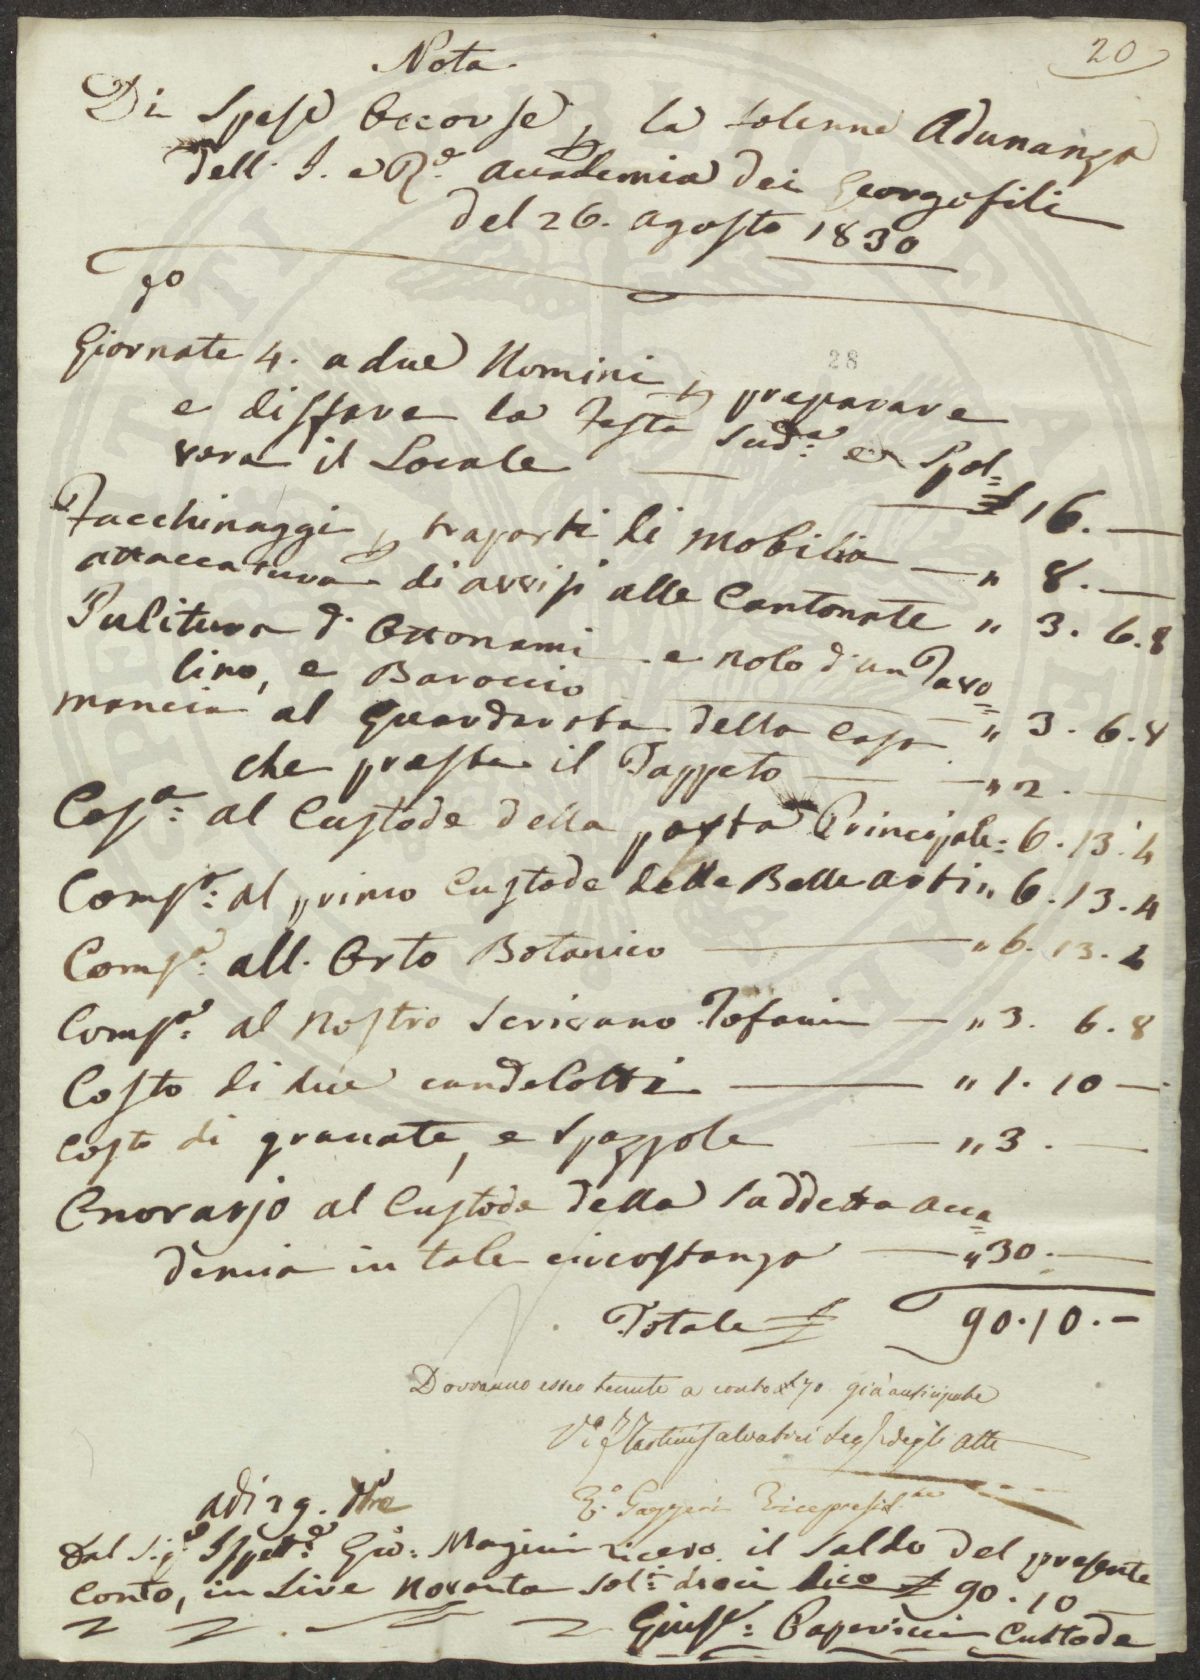 20
Nota
Di Spese Occorse p la solenne Adunanza
dell. I. e R.e Accademia dei Georgofili
del 26. agosto 1830
28
Giornate 4. a due Uomini p preparare
e disffare la Festa sud.a e Spol=
vera il Locale — £ 16. —
Facchinaggi p traporti di mobilia — " 8. —
attaccatura di avvisi alle Cantonate " 3. 6.8
Pulitura d. Ottonami e nolo d'un Tavo=
lino, e Baroccio — " 3. 6.8
mancia al Guardaroba della Casa
che presta il Tappeto — " 2. —
Comp.a al Custode della porta Principale= 6. 13. 4
Comp.a al primo Custode delle Belle arti " 6. 13. 4
Comp.a all. Orto Botanico — " 6. 13. 4
Comp.a al nostro Scrivano Tofani — " 3. 6. 8
Costo di due candelotti — " 1. 10 —
Costo di granate, e Spazzole — " 3. —
Onorario al Custode della Suddetta acca=
demia in tale circostanza — " 30. —
Totale £ 90. 10. —
Dovranno esser tenute a conto £ 70 già anticipate
Salvatici Seg. degli atti
E. Gazzeri Vicepresid.te
adi 29. d.o
Dal Sig.e Ispet.e Gio: Magini ricevo il Saldo del presente
Conto, in Lire Novanta sol: dieci dico £ 90. 10
Gius.e: Paperini Custode